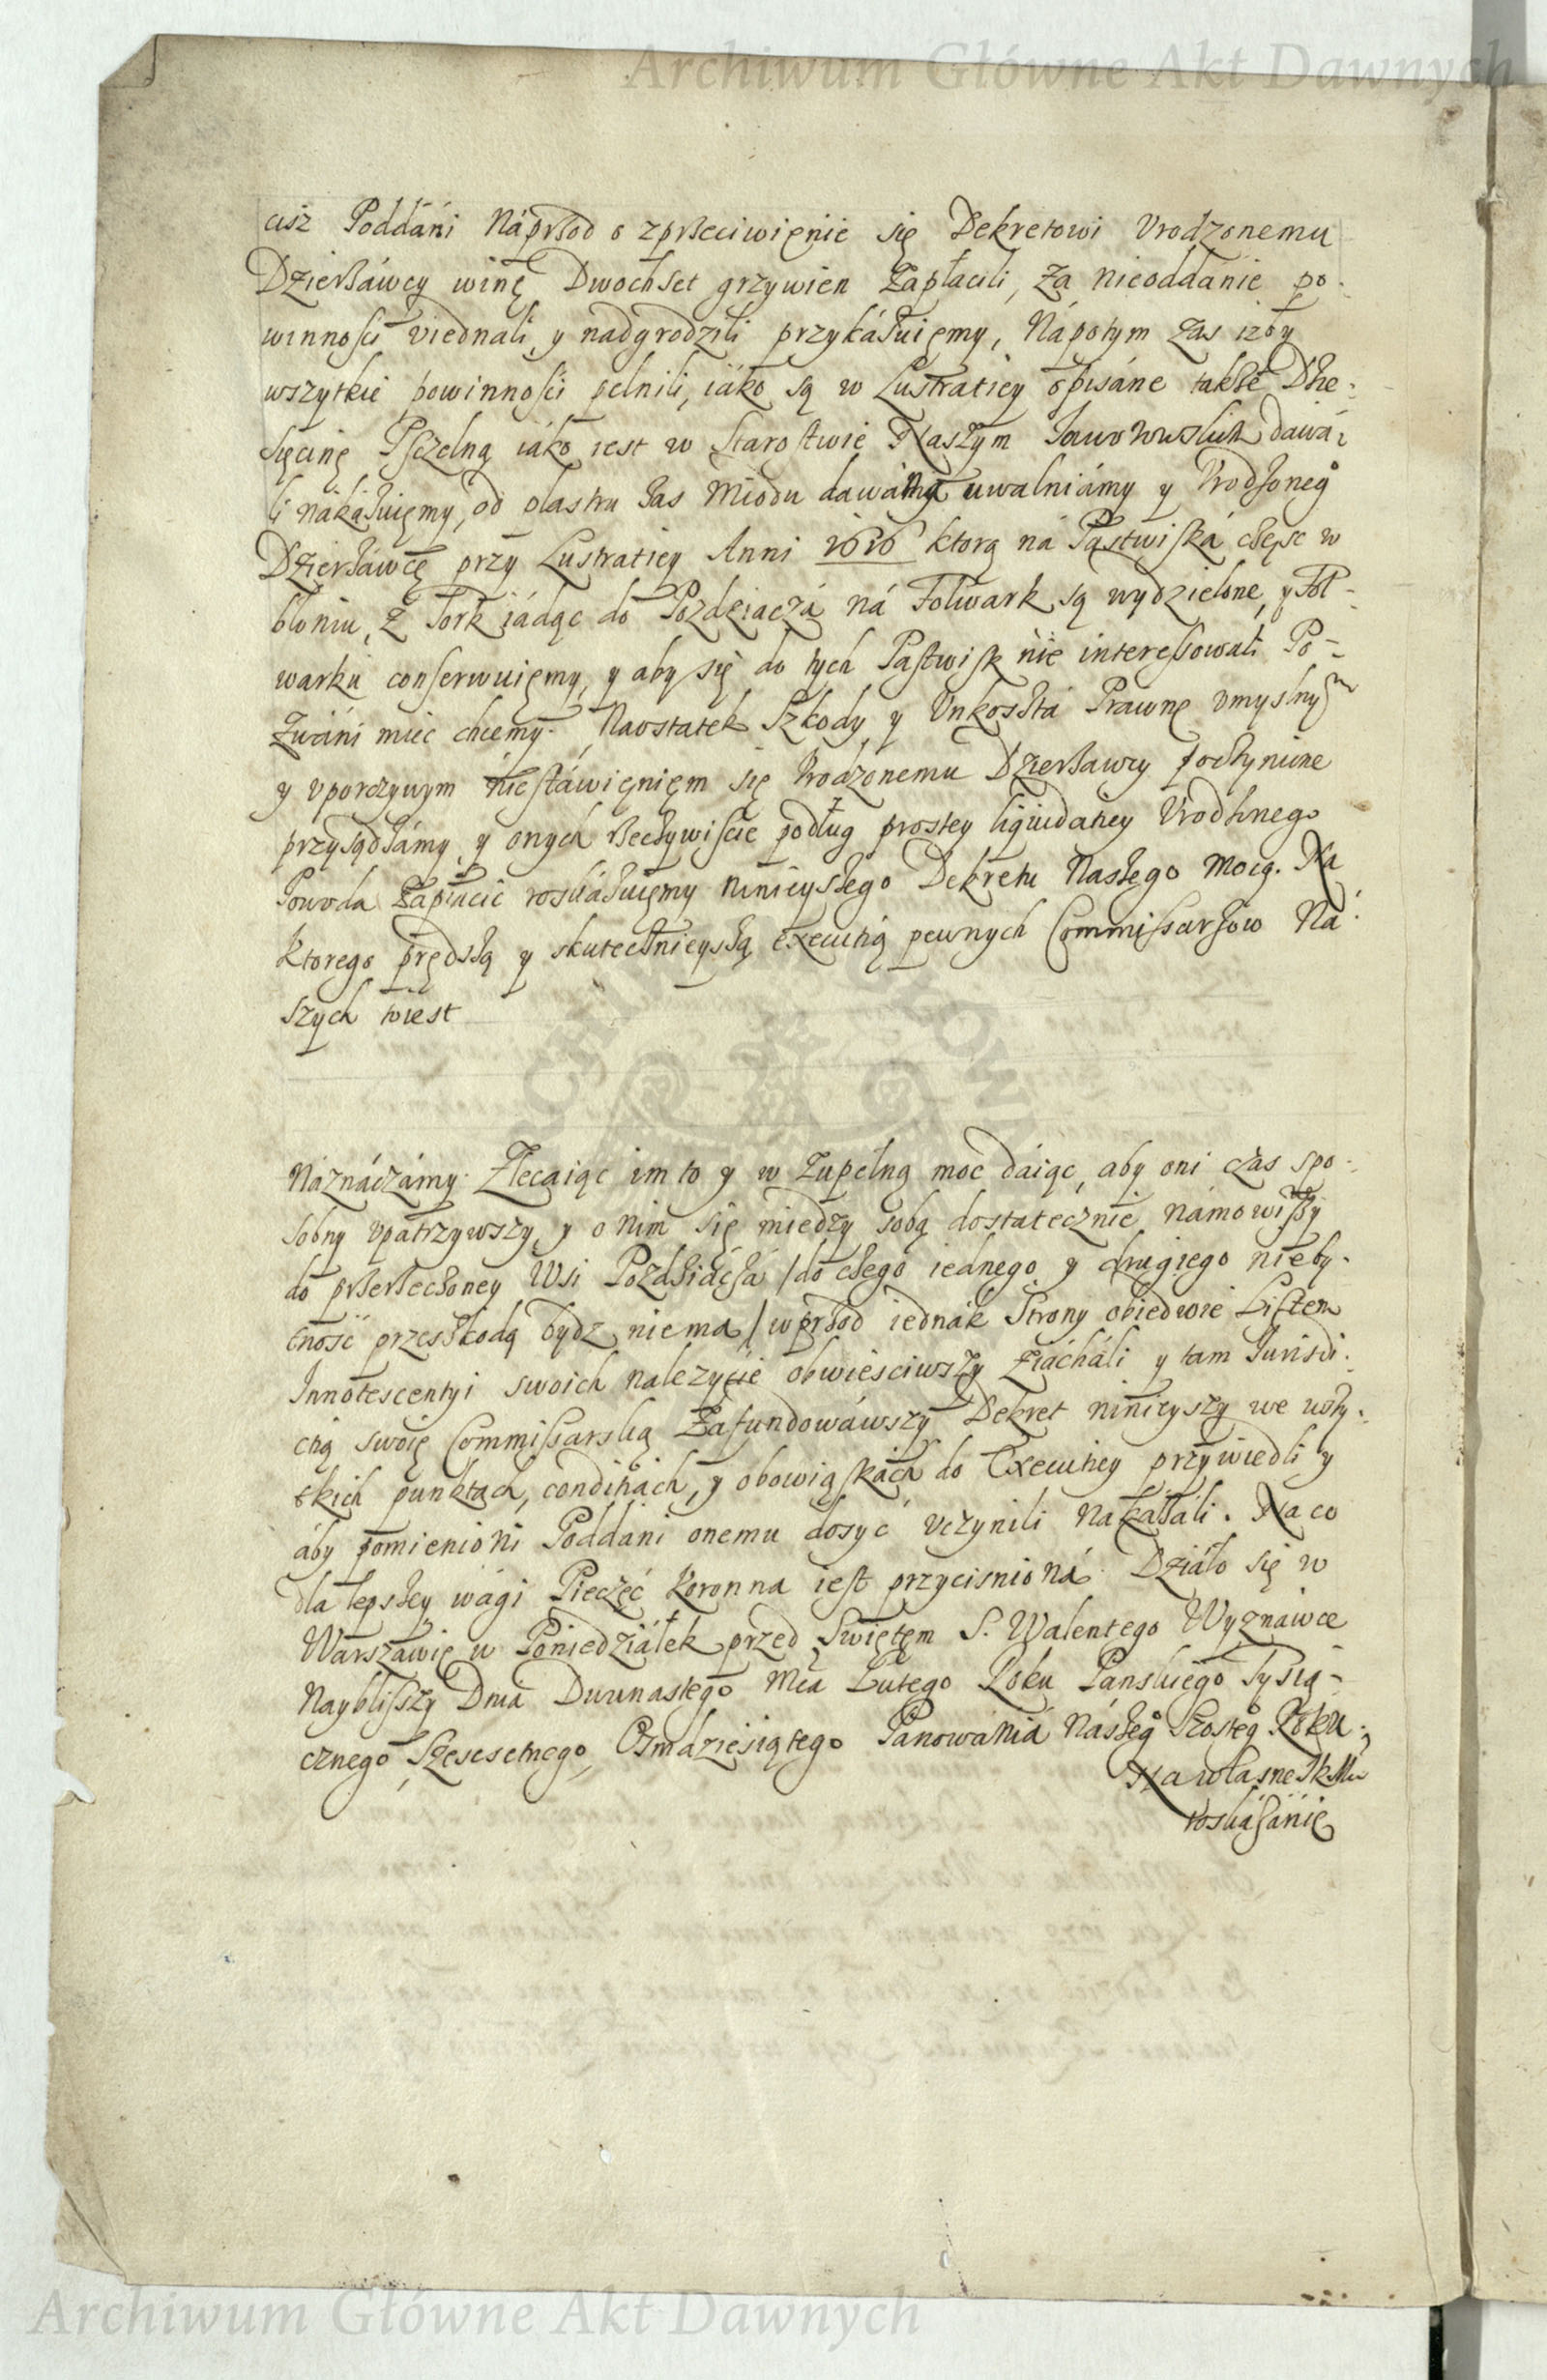 Archiwum Główne Akt Dawnych
ciż Poddáni Náprzod o zprzeciwięnie się Dekretowi Vrodzonemu
Dzierżáwcy winę Dwochset grzywien Zapłacili, Za nieoddanie po-
winnosci viednali y nadgrodzili przykáżuięmy, Nápotym zas iżby
wszytkie powinnosci pełnili, iáko są w Lustratiey opisáne także Dźie-
sięcinę Psczelną iáko iest w Starostwie Naszym Jaworowskim dawá-
li nákáżuięmy, od plastru żas Miodu dawánia uwalniámy y Vrodzoneg°
Dzierżáwcę przy Lustratiey Anni 1616 ktorą ná Pastwiská część w
błoniu, z Tork iádąc do Pozdziaczá ná Folwark są wydzielone, y Fol-
warku conserwuięmy, y aby się do tych Pastwisk nie interessowali Po-
zwáni miec chcemy. Naostatek Szkody y Vnkoszta Prawnę vmyslnym
y vporczywym niestáwięnięm się Vrodzonemu Dzierżawcy poczynione
przysądzámy, y onych rzeczywiscie podług prostey liquidatiey Vrodzonego
Powoda Zapłacic roskáżuięmy ninieyszego Dekretu Naszego mocą. Na
ktorego prędszą y skutecznieyszą executią pewnych Commissarzow Na-
szych toiest
Náznáczámy. Zlecaiąc im to y w Zupełną moc dáiąc, aby oni czas spo-
sobny vpátrzywszy, y o nim się miedzy sobą dostatecznie námowiwszy
do przerzeczoney Wsi Pozdziáczá /do czego iednego y drugiego nieby-
tność przeszkodą bydz niema/ wprzod iednák Strony obiedwie Listem
Innotescentyi swoich nalezycie obwiesciwszy ziácháli y tam Jurisdi-
ctią swoię Commissarską Zafundowáwszy Dekret ninieyszy we wszy-
tkich punktach, conditiách, y obowiąskách do Executiey przywiedli y
áby pomienioni Poddani onemu dosyć vczynili nakazáli. Na co
dla lepszey wági Pieczęć Koronna iest przycisnioná. Dziáło się w
Warszáwie w Poniedziáłek przed Swiętęm S. Walentego Wyznáwce
Nayblisszy Dnia Dwunastego Mca Lutego Roku Panskiego Tysią-
cznego Szescsetnego, Osmdziesiątego Panowánia Nászeg° Szosteg° Roku.
Na własne JKMci
roskázánie
Archiwum Główne Akt Dawnych